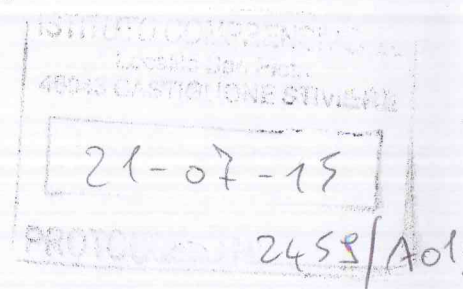 ISTITUTO COMPRENSIVO
46043 CASTIGLIONE STIVIERE
21-07-15
PROTOC
2459/A01